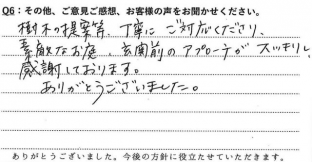 Q6：その他、ご意見ご感想、お客様の声をお聞かせください。
樹木の提案等、丁寧にご対応くださり、
素敵なお庭、玄関前のアプローチがスッキリし、
感謝しております。
ありがとうございました。
ありがとうございました。今後の方針に役立たせていただきます。